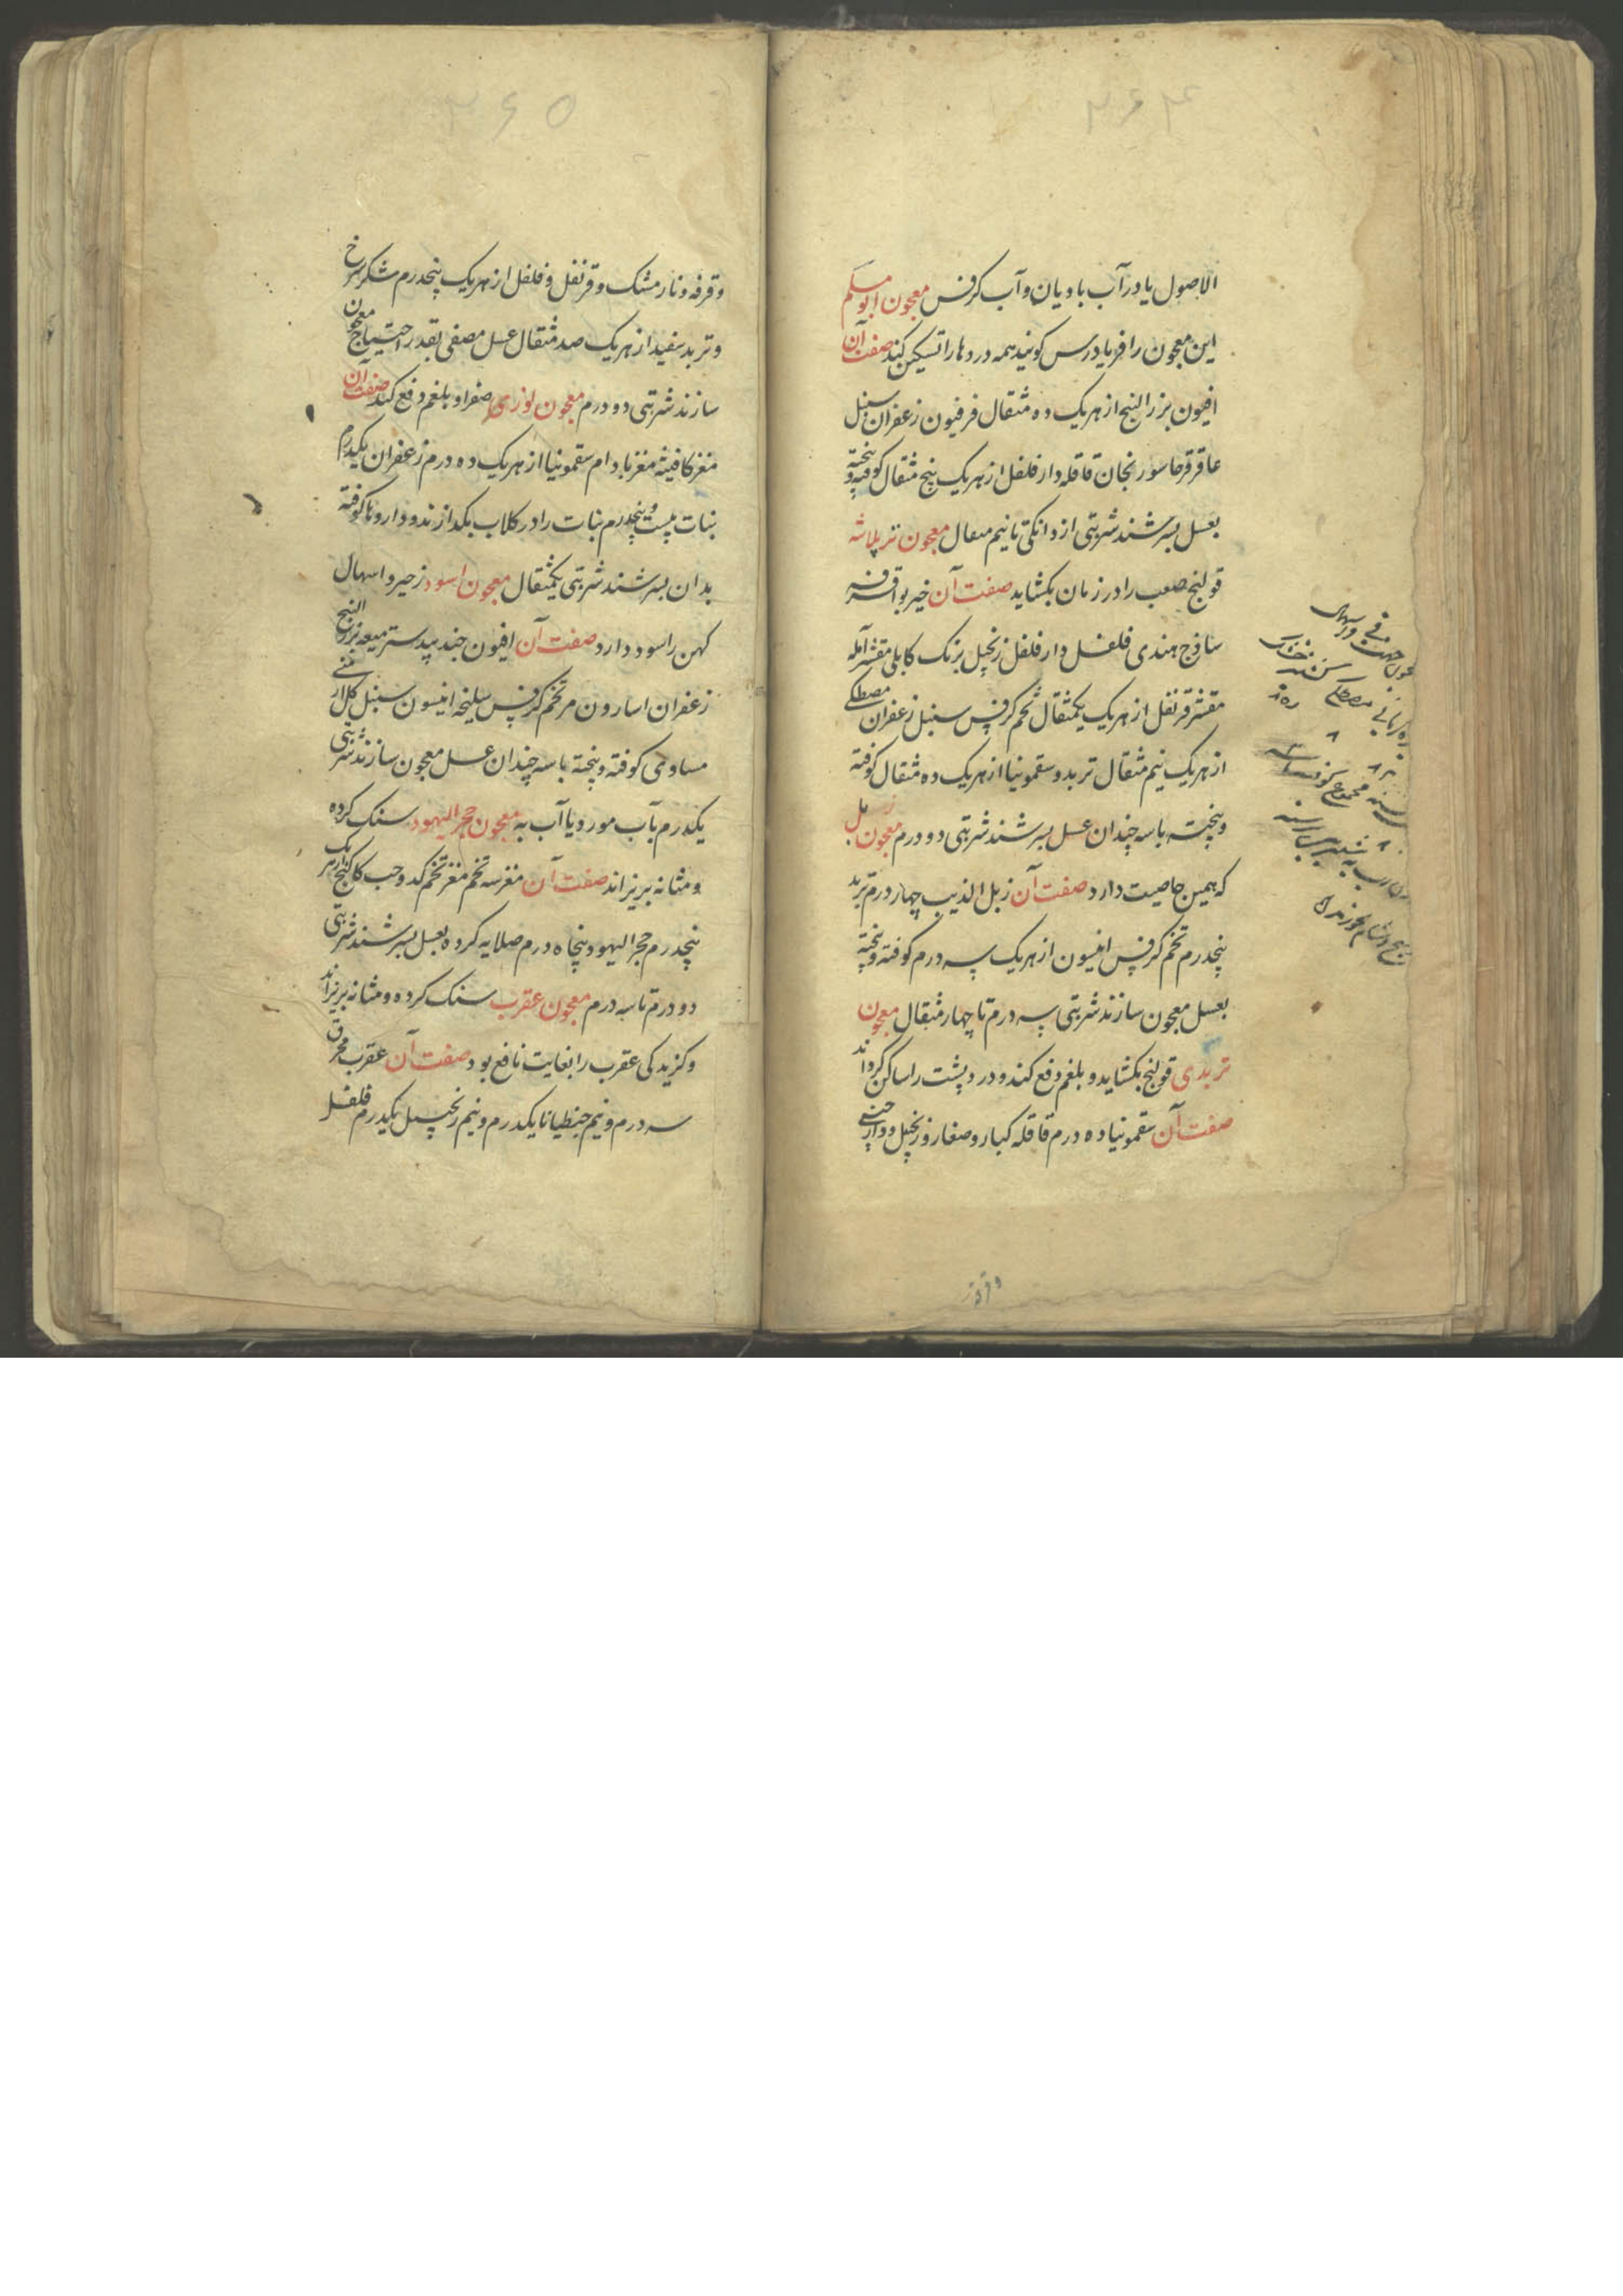 ۳۶۴
الاصول یا در آب بادیان و آب کرفس معجون ابو مسلم
این معجون را فریادرس کویند همه دردها را تسکین کند صفت آن
افیون بزر البنج از هر یک ده مثقال فرفیون زعفران سنبل
عاقرقرحا سورنجان قاقله دارفلفل از هر یک پنج مثقال کوفته و بیخته
بعسل بسرشند شربتی از دانکی تا نیم مثقال معجون
قولنج صعب را در زمان بکشاید صفت آن خیربوا قرفه
ساذج هندی فلفل دارفلفل زنجبیل برنک کابلی مقشر آمله
مقشر قرنفل از هر یک یکمثقال تخم کرفس سنبل زعفران مصطکی
از هر یک نیم مثقال تربد و سقمونیا از هر یک ده مثقال کوفته
و بیخته با سه چندان عسل بسرشند شربتی دو درم معجون زبل
که همین خاصیت دارد صفت آن زبل الذیب چهار درم تربد
پنجدرم تخم کرفس انیسون از هر یک سه درم کوفته و بیخته
بعسل معجون سازند شربتی سه درم تا چهار مثقال معجون
تربدی قولنج بکشاید و بلغم دفع کند و درد پشت را ساکن کرداند
صفت آن سقمونیا ده درم قاقله کبار و صغار و زنجبیل و دارچینی
وقرفه
۳۶۵
و قرفه و نارمشک و قرنفل و فلفل از هر یک پنجدرم شکر سرخ
و تربد سفید از هر یک صد مثقال عسل مصفی بقدر احتیاج معجون
سازند شربتی دو درم معجون لوزی صفرا و بلغم دفع کند صفت آن
مغز کافیشه مغز بادام سقمونیا از هر یک ده درم زعفران یکدرم
نبات بیست و پنجدرم نبات را در کلاب بکدازند و داروها کوفته
بدان بسرشند شربتی یکمثقال معجون اسود زحیر و اسهال
کهن را سود دارد صفت آن افیون جندبیدستر میعه بزر البنج
زعفران اسارون مر تخم کرفس سلیخه انیسون سنبل کل ارمنی
مساوی کوفته و بیخته با سه چندان عسل معجون سازند شربتی
یکدرم بآب مورد یا آب به معجون حجر الیهود سنک کرده
و مثانه بریزاند صفت آن مغز سه تخم مغز تخم کدو حب کاکنج از هر یک
پنجدرم حجر الیهود پنجاه درم صلایه کرده بعسل بسرشند شربتی
دو درم تا سه درم معجون عقرب سنک کرده و مثانه بریزاند
و کزیدکی عقرب را بغایت نافع بود صفت آن عقرب محرق
سه درم و نیم جنطیانا یکدرم و نیم زنجبیل یکدرم فلفل